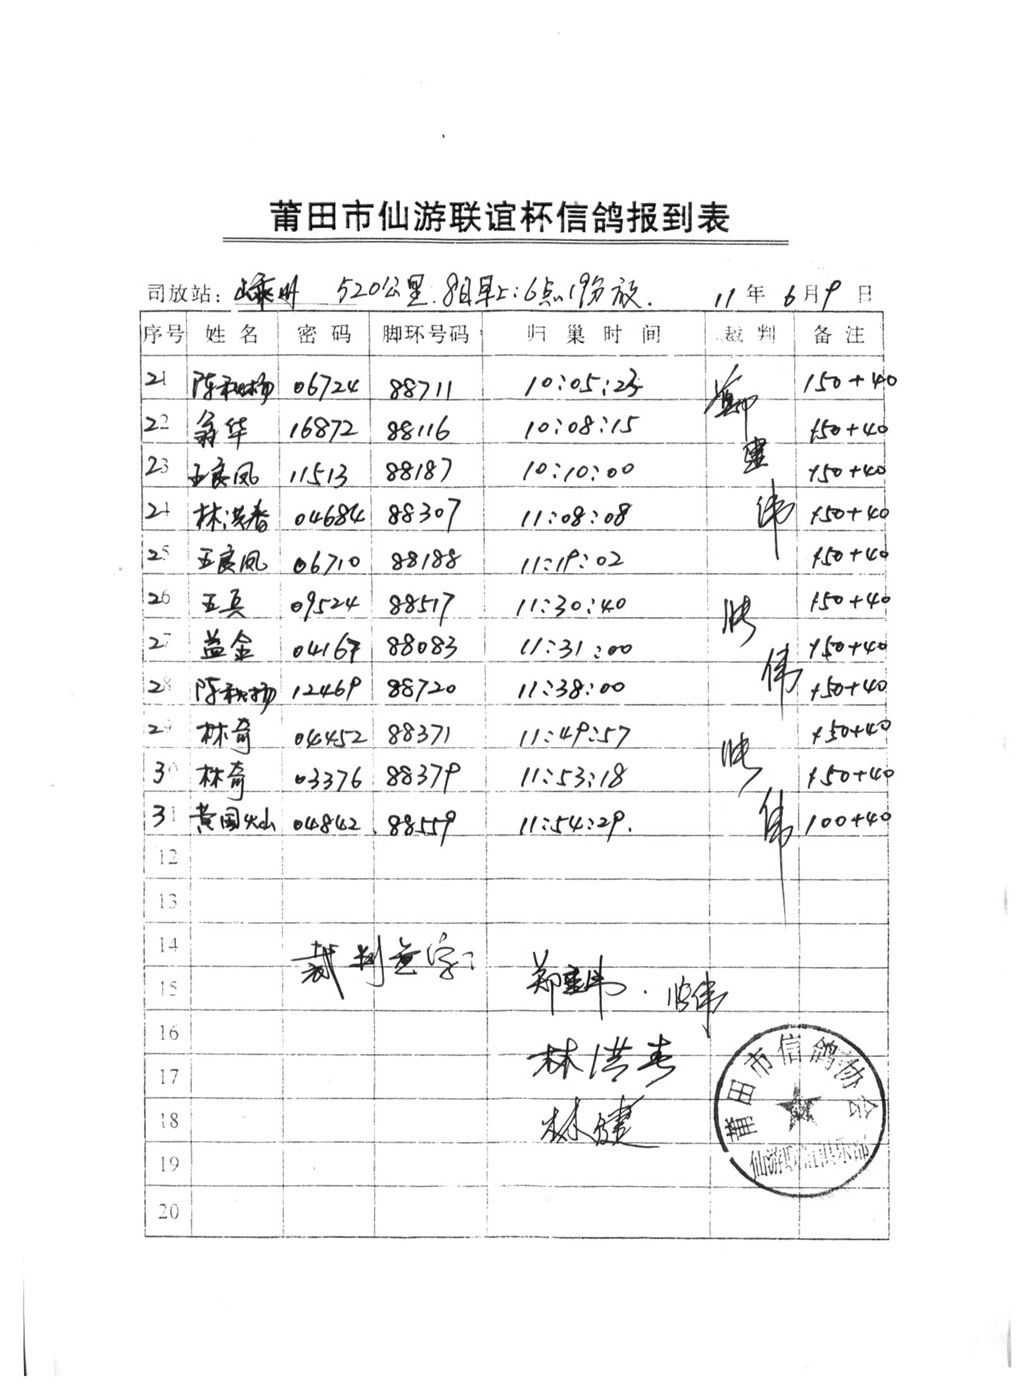 莆田市仙游联谊杯信鸽报到表
司放站：嵊州 520公里.8日早上:6点19分放. 11年6月9日
序号 姓名 密码 脚环号码 归巢时间 裁判 备注
21 06724 88711 10:05:23 150+40
22 翁华 16872 88116 10:08:15 150+40
23 王良凤 11513 88187 10:10:00 150+40
24 林洪春 04684 88307 11:08:08 150+40
25 王良凤 06710 88188 11:19:02 150+40
26 王兵 09524 88517 11:30:40 150+40
27 益金 04167 88083 11:31:00 150+40
28 12469 88720 11:38:00 150+40
29 林奇 04452 88371 11:49:57 150+40
30 林奇 03376 88379 11:53:18 150+40
31 黄国灿 04842 88559 11:54:29. 100+40
郑建伟
伟
伟
12
13
14
裁判签字:
郑建伟.
伟
15
16
林洪春
17
18
林健
19
20
莆田市信鸽协会
仙游联谊俱乐部